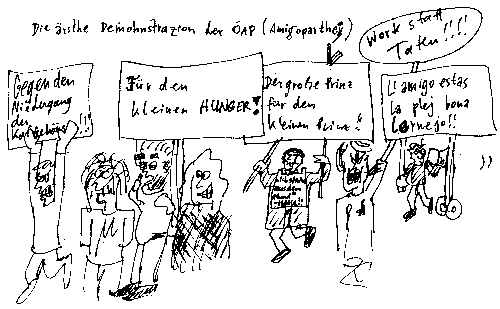 Die ärste Demohnstrazion der ÖAP (Amigoparthei)
Work statt
Taten!!!!
Gegen den
Nidergang
der
!!!
Für den
kleinen HUNGER!
Der große Prinz
für den
kleinen Prinz!!
L'amigo estas
La plej bona
Cornejo!!